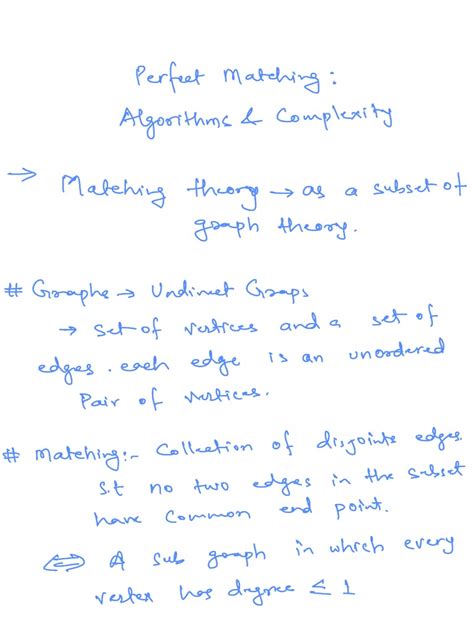 Perfect Matching :
Algorithms & Complexity
→ Matching theory → as a subset of
graph theory.
# Graphs → Undirect Graps
→ set of vertices and a set of
edges. each edge is an unordered
Pair of vertices.
# Matching:- Collection of disjoints edges.
s.t no two edges in the subset
have common end point.
⇔ A sub graph in which every
vertex has degree ≤ 1